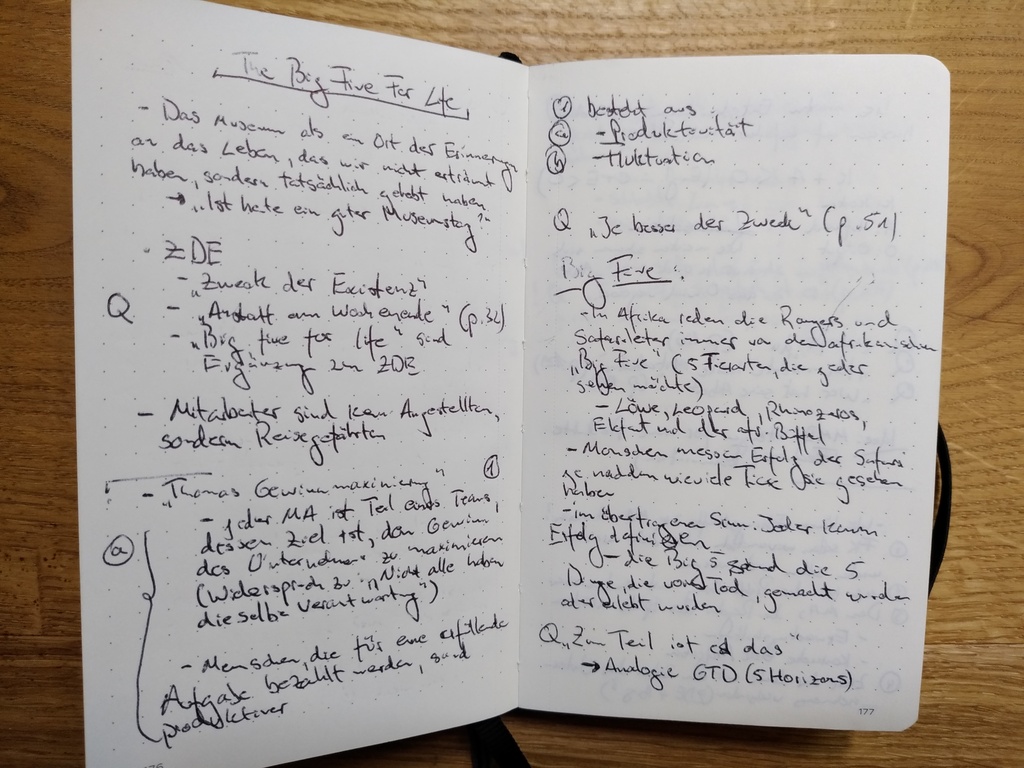 The Big Five For Life
- Das Museum als ein Ort der Erinnerung
an das Leben, das wir nicht erträumt
haben, sondern tatsächlich gelebt haben
→ „Ist heute ein guter Museumstag?"
- ZDE
- „Zweck der Existenz"
Q - „Anstatt am Wochenende" (p.32)
- „Big five for life" sind
Ergänzung zum ZDE
- Mitarbeiter sind kein Angestellten,
sondern Reisegefährten
- „Thomas Gewinnmaximierung" ①
- jeder MA ist Teil eines Teams,
ⓐ dessen Ziel ist, den Gewinn
des Unternehmens zu maximieren
(Widerspruch zu „Nicht alle haben
dieselbe Verantwortung")
- Menschen, die für eine erfüllende
Aufgabe bezahlt werden, sind
produktiver
① besteht aus:
ⓐ - Produktivität
ⓑ - Fluktuation
Q „Je besser der Zweck" (p.51)
Big Five:
- In Afrika reden die Rangers und
Safarileiter immer von den afrikanischen
„Big Five" (5 Tierarten, die jeder
sehen möchte)
- Löwe, Leopard, Rhinozeros,
Elefant und der afr. Büffel
- Menschen messen Erfolg der Safari
je nachdem wieviele Tiere sie gesehen
haben
- im übertragenen Sinn: Jeder kann
Erfolg definieren
- die Big 5 sind die 5
Dinge, die vorm Tod, gemacht wurden
oder erlebt wurden
Q „Zum Teil ist es das"
→ Analogie GTD (5 Horizons)
177